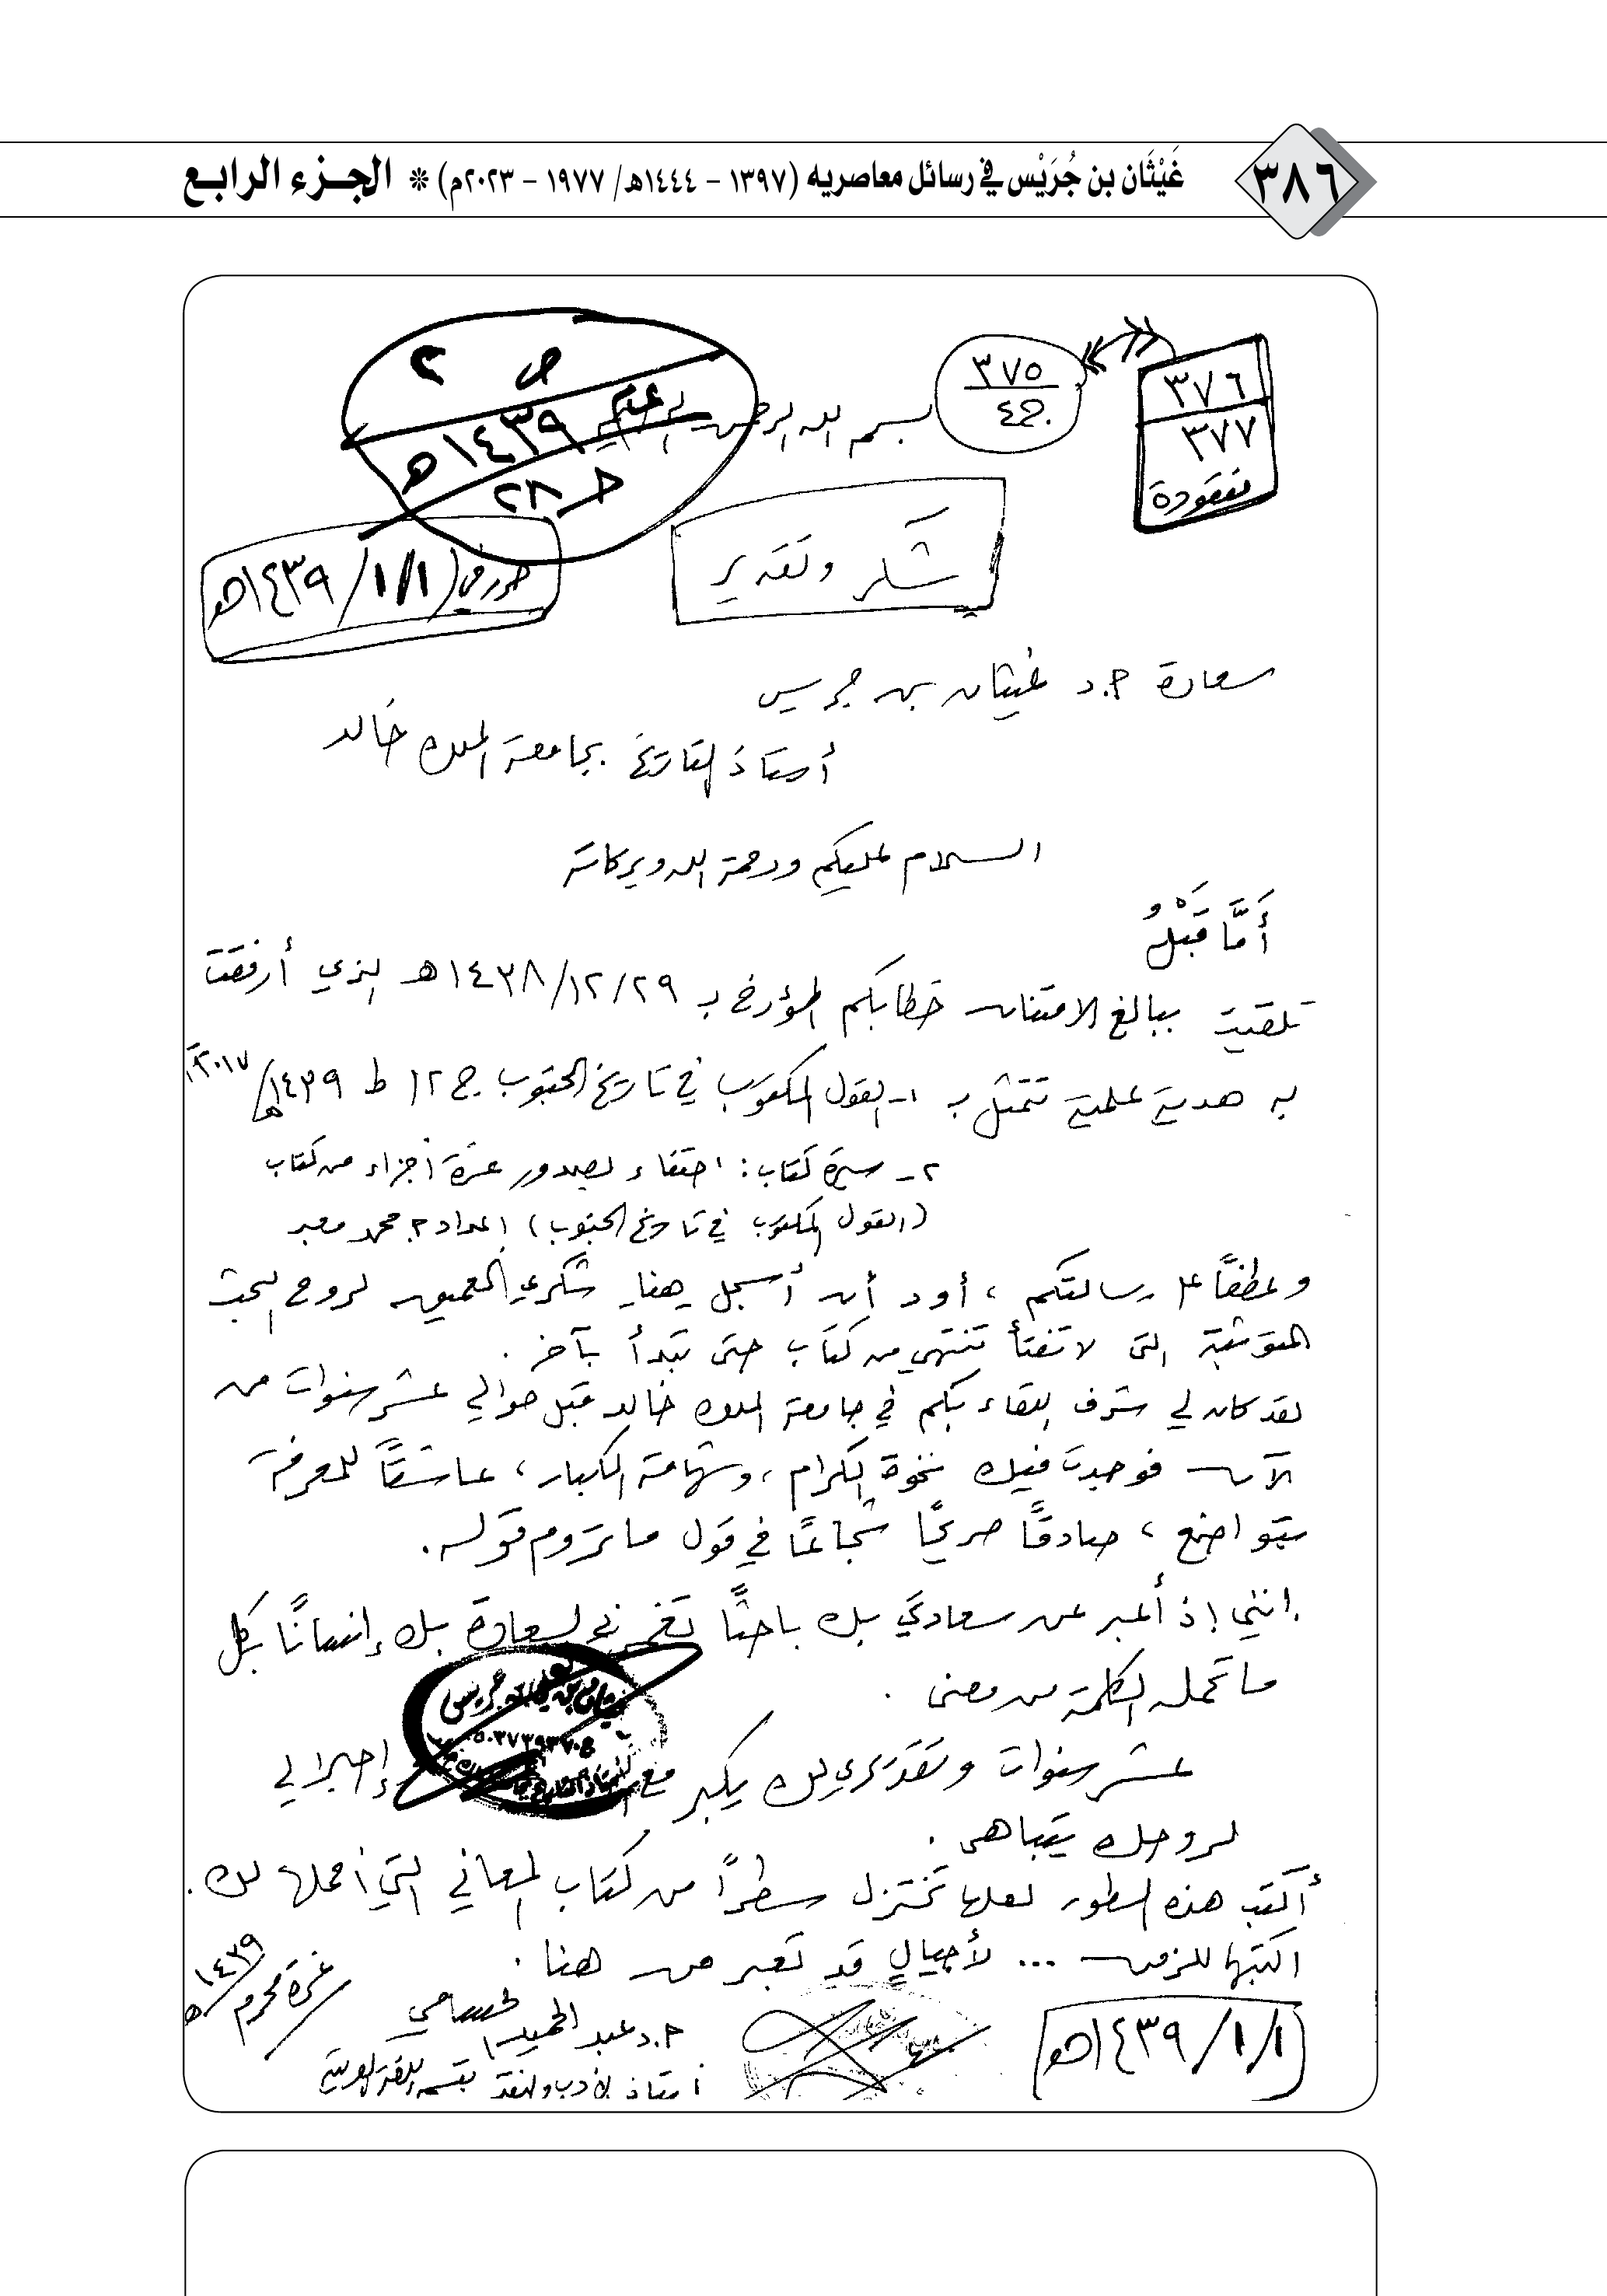 ٣٨٦
غَيْثَان بن جُرَيْس في رسائل معاصريه (١٣٩٧ - ١٤٤٤هـ/ ١٩٧٧ - ٢٠٢٣م) * الجزء الرابع
٣٧٦
٣٧٧
مفقودة
٣٧٥
ج٤
ص ٢
١٤٣٩هـ
ج ٢٨
بسم الله الرحمن الرحيم
شكر وتقدير
١/١/١٤٣٩هـ
سعادة أ.د غيثان بن جريس
أستاذ التاريخ بجامعة الملك خالد
السلام عليكم ورحمة الله وبركاته
أَمَّا قَبْلُ
تلقيت ببالغ الامتنان خطابكم المؤرخ بـ ٢٩/١٢/١٤٣٨هـ الذي أرفقت
به هدية علمية تتمثل بـ ١- القول المكتوب في تاريخ الجنوب ج ١٢ ط ١٤٣٩هـ/٢٠١٧م
٢- سيرة كتاب: احتفاء بصدور عشرة أجزاء من كتاب
(القول المكتوب في تاريخ الجنوب) إعداد أ. محمد معبر
وعطفًا على رسالتكم، أود أن أسجل هنا شكري العميق لروح البحث
المتوثبة التي لا تفتأ تنتهي من كتاب حتى تبدأ بآخر.
لقد كان لي شرف اللقاء بكم في جامعة الملك خالد قبل حوالي عشر سنوات من
الآن فوجدت فيك نخوة الكرام، وشهامة الكبار، عاشقًا للمعرفة
بتواضع، صادقًا صريحًا شجاعًا في قول ما تروم قوله.
إنني إذ أعبر عن سعادتي بك باحثًا تغمرني السعادة بك إنسانًا بكل
ما تحمله الكلمة من معنى.
عشر سنوات وتقديري لك يكبر مع وإكباري
لروحك يتباهى.
أكتب هذه السطور لعلها تختزل سطرًا من كتاب المعاني التي أحملها لك.
أكتبها للزمن ... لأجيالٍ قد تعبر من هنا.
غرة محرم
١٤٣٩هـ
أ.د عبد الحميد الحسامي
أستاذ الأدب والنقد بقسم اللغة العربية
١/١/١٤٣٩هـ